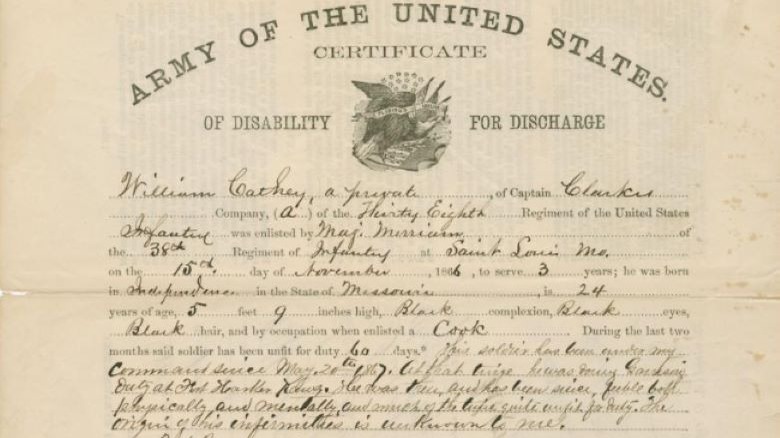 ARMY OF THE UNITED STATES.
CERTIFICATE
OF DISABILITY FOR DISCHARGE
William Cathey, a private, of Captain Clarke's
Company, (A) of the Thirty Eighth Regiment of the United States
Infantry was enlisted by Maj. Merriam of
the 38th Regiment of Infantry at Saint Louis Mo.
on the 15th day of November, 1866, to serve 3 years; he was born
in Independence in the State of Missouri, is 24
years of age, 5 feet 9 inches high, Black complexion, Black eyes,
Black hair, and by occupation when enlisted a Cook. During the last two
months said soldier has been unfit for duty 60 days.* This soldier has been under my
command since May 20th 1867. At that time he was doing Garrison
duty at Fort Harker. He was then, and has been since, feeble both
physically and mentally, and much of the time quite unfit for duty. The
origin of his infirmities is unknown to me.